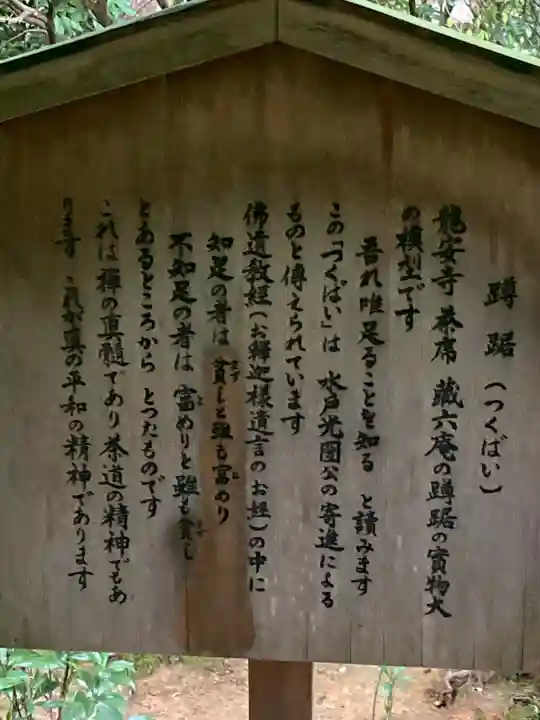 蹲踞(つくばい)
龍安寺 茶席 蔵六庵の蹲踞の實物大
の模型です
吾れ唯足ることを知る と讀みます
この「つくばい」は 水戸光圀公の寄進による
ものと傳えられています
佛遺教経(お釋迦様遺言のお経)の中に
知足の者は 貧しと雖も富めり
不知足の者は 富めりと雖も貧し
とあるところから とつたものです
これは禅の真髓であり茶道の精神でもあ
ります これが真の平和の精神であります